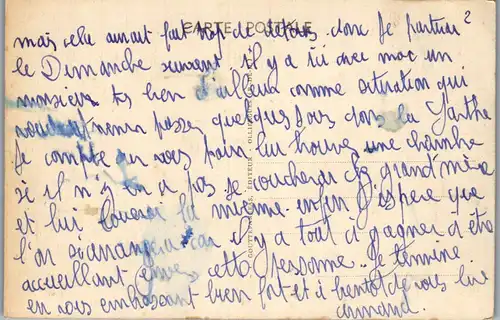 CARTE POSTALE
2
mais cela aurait fait trop de détours donc je partirai
le Dimanche suivant il y a ici avec moi un
monsieur très bien d'ailleurs comme situation qui
voudrait venir passer quelques jours dans la Sarthe
je compte sur vous pour lui trouver une chambre
si il n'y en a pas je coucherai chez grand'mère
et lui louerai la mienne enfin j'espère que
l'on s'arrangera car il y a tout à gagner d'être
accueillant envers cette personne. Je termine
en vous embrassant bien fort et à bientôt de vous lire
armand.